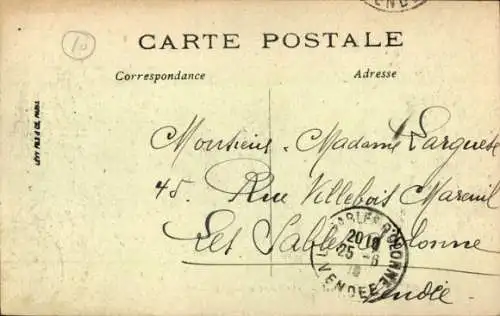 VENDÉE
10
CARTE POSTALE
Correspondance
Adresse
LÉVY FILS & CIE, PARIS
Monsieur. Madame Larguese
45. Rue Villebois Mareuil
Les Sables d'Olonne
Vendée
LES SABLES D'OLONNE
20
25 - 6
VENDÉE